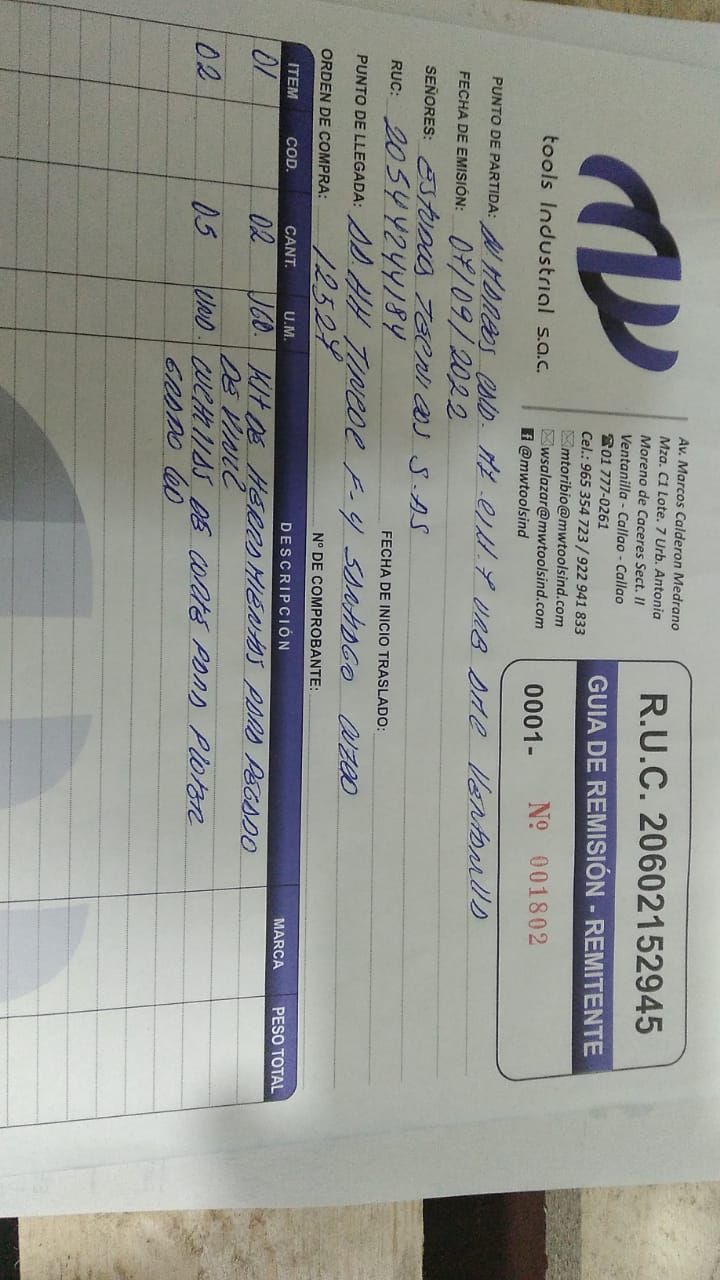 MW
tools Industrial s.a.c.
Av. Marcos Calderon Medrano
Mza. C1 Lote. 7 Urb. Antonia
Moreno de Caceres Sect. II
Ventanilla - Callao - Callao
☎01 777-0261
Cel.: 965 354 723 / 922 941 833
mtoribio@mwtoolsind.com
wsalazar@mwtoolsind.com
@mwtoolsind
R.U.C. 20602152945
GUIA DE REMISIÓN - REMITENTE
0001- Nº 001802
PUNTO DE PARTIDA: URB
FECHA DE EMISIÓN: 07/09/2022
SEÑORES: ESTUDIOS TECNICOS S.AS
RUC: 20544244184 FECHA DE INICIO TRASLADO:
PUNTO DE LLEGADA: AA HH F-4 SANTIAGO
ORDEN DE COMPRA: 12527 Nº DE COMPROBANTE:
ITEM COD. CANT. U.M. DESCRIPCIÓN MARCA PESO TOTAL
01 02 JGO. KIT DE HERRAMIENTAS PARA PEGADO
DE VINIL
02 05 UND. CUCHILLAS DE CORTE PARA PLOTER
GRADO 60